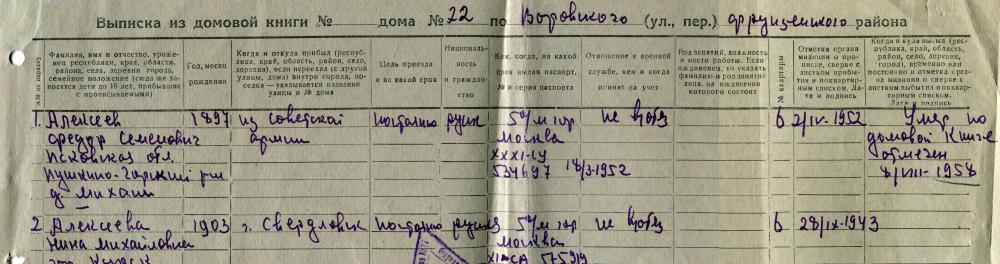 Выписка из домовой книги № дома № 22 по Воровского (ул., пер.) Фрунзенского района
№№ по порядку
Фамилия, имя и отчество, уроженец республики, края, области, района, села, деревни города, семейное положение (сюда же заносятся дети до 16 лет, прибывшие с прописываемыми)
Год, месяц рождения
Когда и откуда прибыл (республика, край, область, район, село, деревня), если переехал (с другой улицы, дома) внутри города, поселка — указывается название улицы и № дома
Цель приезда и на какой срок
Национальность и гражданство
Кем, когда, на какой срок выдан паспорт, № и серия паспорта
Отношение к военной службе, кем и когда принят на учет
Род занятий, должность и место работы. Если иждивенец, то указать фамилию и род занятий лица, на иждивении которого состоит
№ квартиры
Отметка органа милиции о прописке, сверке с листком прибытия и поквартирным списком. Дата и подпись
Когда и куда выбыл (республика, край, область, район, село, деревня, город), временно или постоянно и отметка органа милиции о сверке с листком выбытия и поквартирным списком. Дата и подпись
1. Алексеев 1897 из советской постоянно русск 57 м гор не 6 2/IV-1952 Умер по
Федор Семенович армии Москва домовой книге
Псковская обл. XXXI-СУ отмечен
Пушкино-Горский р-н 534697 18/3-1952 8/VIII-1958
д. Михаи
2 Алексеева 1903 г. Свердловск постоянно русск 57 м гор не 6 28/IX-1943
Нина Михайловна Москва
575919